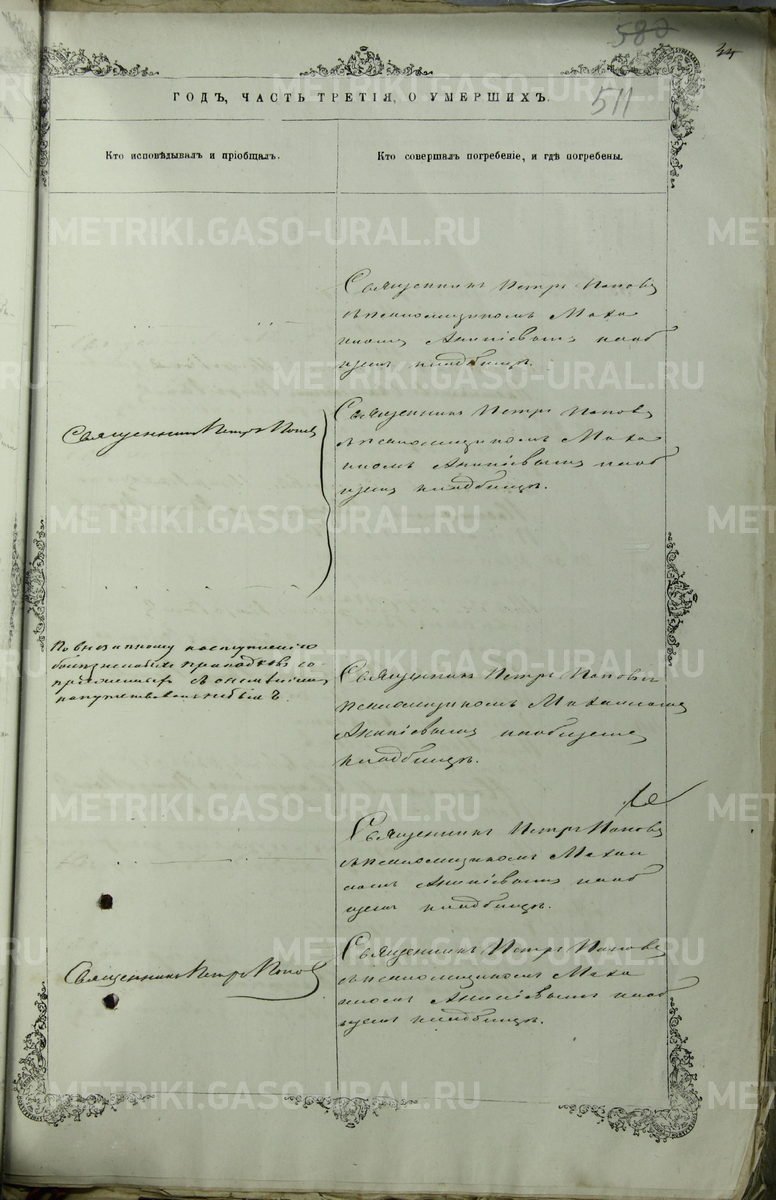 580
511
ГОДЪ, ЧАСТЬ ТРЕТІЯ, О УМЕРШИХЪ.
Кто исповѣдывалъ и пріобщалъ.
Кто совершалъ погребеніе, и гдѣ погребены.
Священникъ Петръ Поповъ
съ псаломщикомъ
Ананіевымъ на об
щемъ кладбищѣ.
Священникъ Петръ Поповъ
Священникъ Петръ Поповъ
съ псаломщикомъ
Ананіевымъ на об
щемъ кладбищѣ.
По внезапному наступленію
припадковъ со
Священникъ Петръ Поповъ съ
псаломщикомъ
Ананіевымъ на общемъ
кладбищѣ.
Священникъ Петръ Поповъ
съ псаломщикомъ
Ананіевымъ на об
щемъ кладбищѣ.
Священникъ Петръ Поповъ
Священникъ Петръ Поповъ
съ псаломщикомъ
Ананіевымъ на об
щемъ кладбищѣ.
METRIKI.GASO-URAL.RU